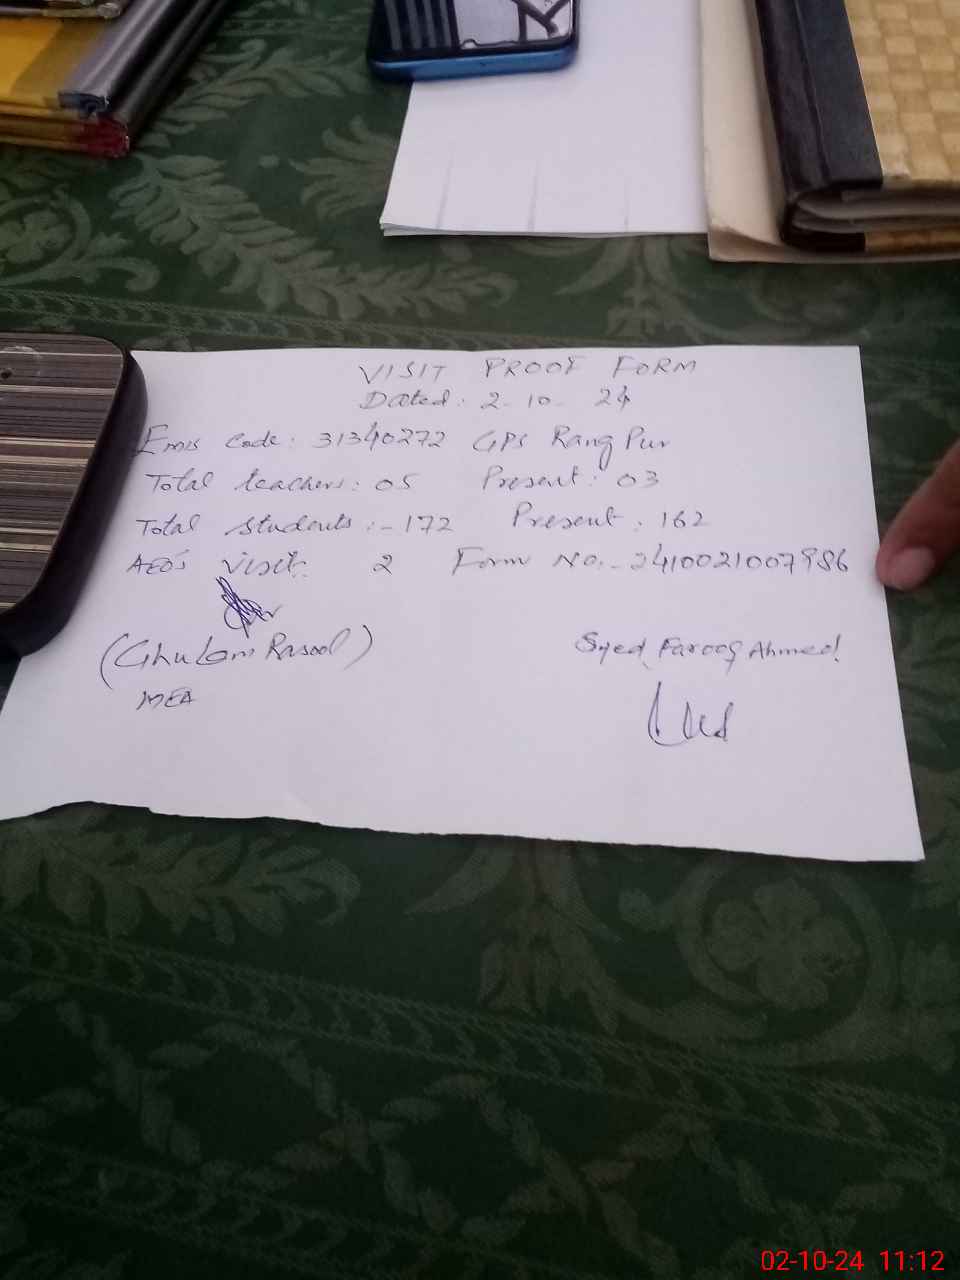 VISIT PROOF FORM
Dated: 2-10-24
Emis Code: 31340272 GPS Rang Pur
Total teachers: 05 Present: 03
Total students:- 172 Present: 162
AEO's visit: 2 Form No.- 2410021007986
(Ghulam Rasool)
MEA
Syed Farooq Ahmed
02-10-24 11:12